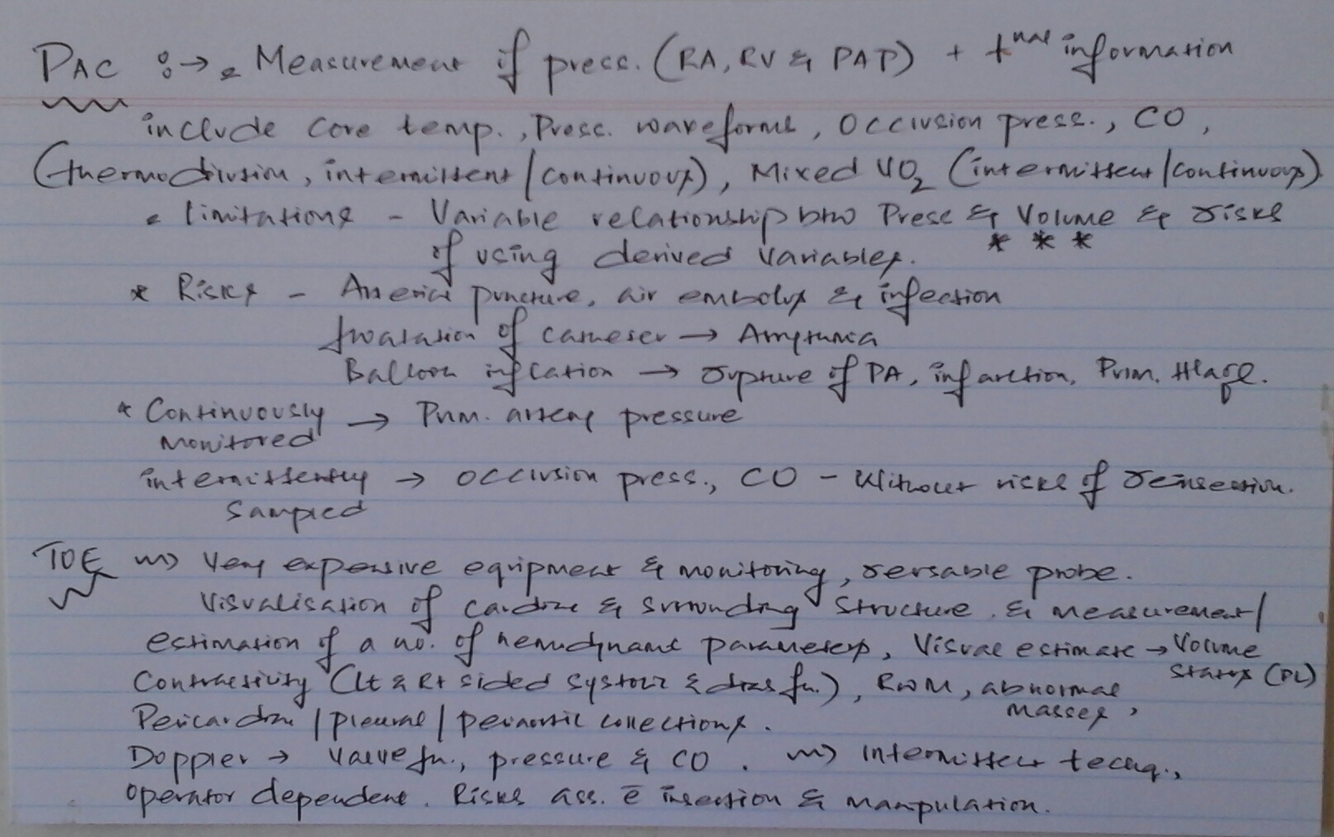 PAC :→ • Measurement of press. (RA, RV & PAP) + tnal information
include core temp., Press. waveforms, Occlusion press., CO,
(thermodilution, intermittent/continuous), Mixed VO2 (intermittent/continuous)
• limitations - Variable relationship btw Press & Volume & risks
* * *
of using derived variables.
* Risks - Arterial puncture, air embolus & infection
floatation of catheter → Arrythmia
Balloon inflation → rupture of PA, infarction, Pulm. Hage.
* Continuously → Pulm. artery pressure
Monitored
intermittently → occlusion press., CO - Without risks of reinsertion.
Sampled
TOE → Very expensive equipment & monitoring, reusable probe.
Visualisation of cardiac & surrounding structure. & measurement/
estimation of a no. of hemodynamic parameters, Visual estimate → Volume
status (PL)
Contractility (Lt & Rt sided systolic & dias fn.), RWM, abnormal
masses,
Pericardial/pleural/periaortic collections.
Doppler → Valve fn., pressure & CO. → Intermittent techq.,
operator dependent. Risks ass. c̄ insertion & manipulation.